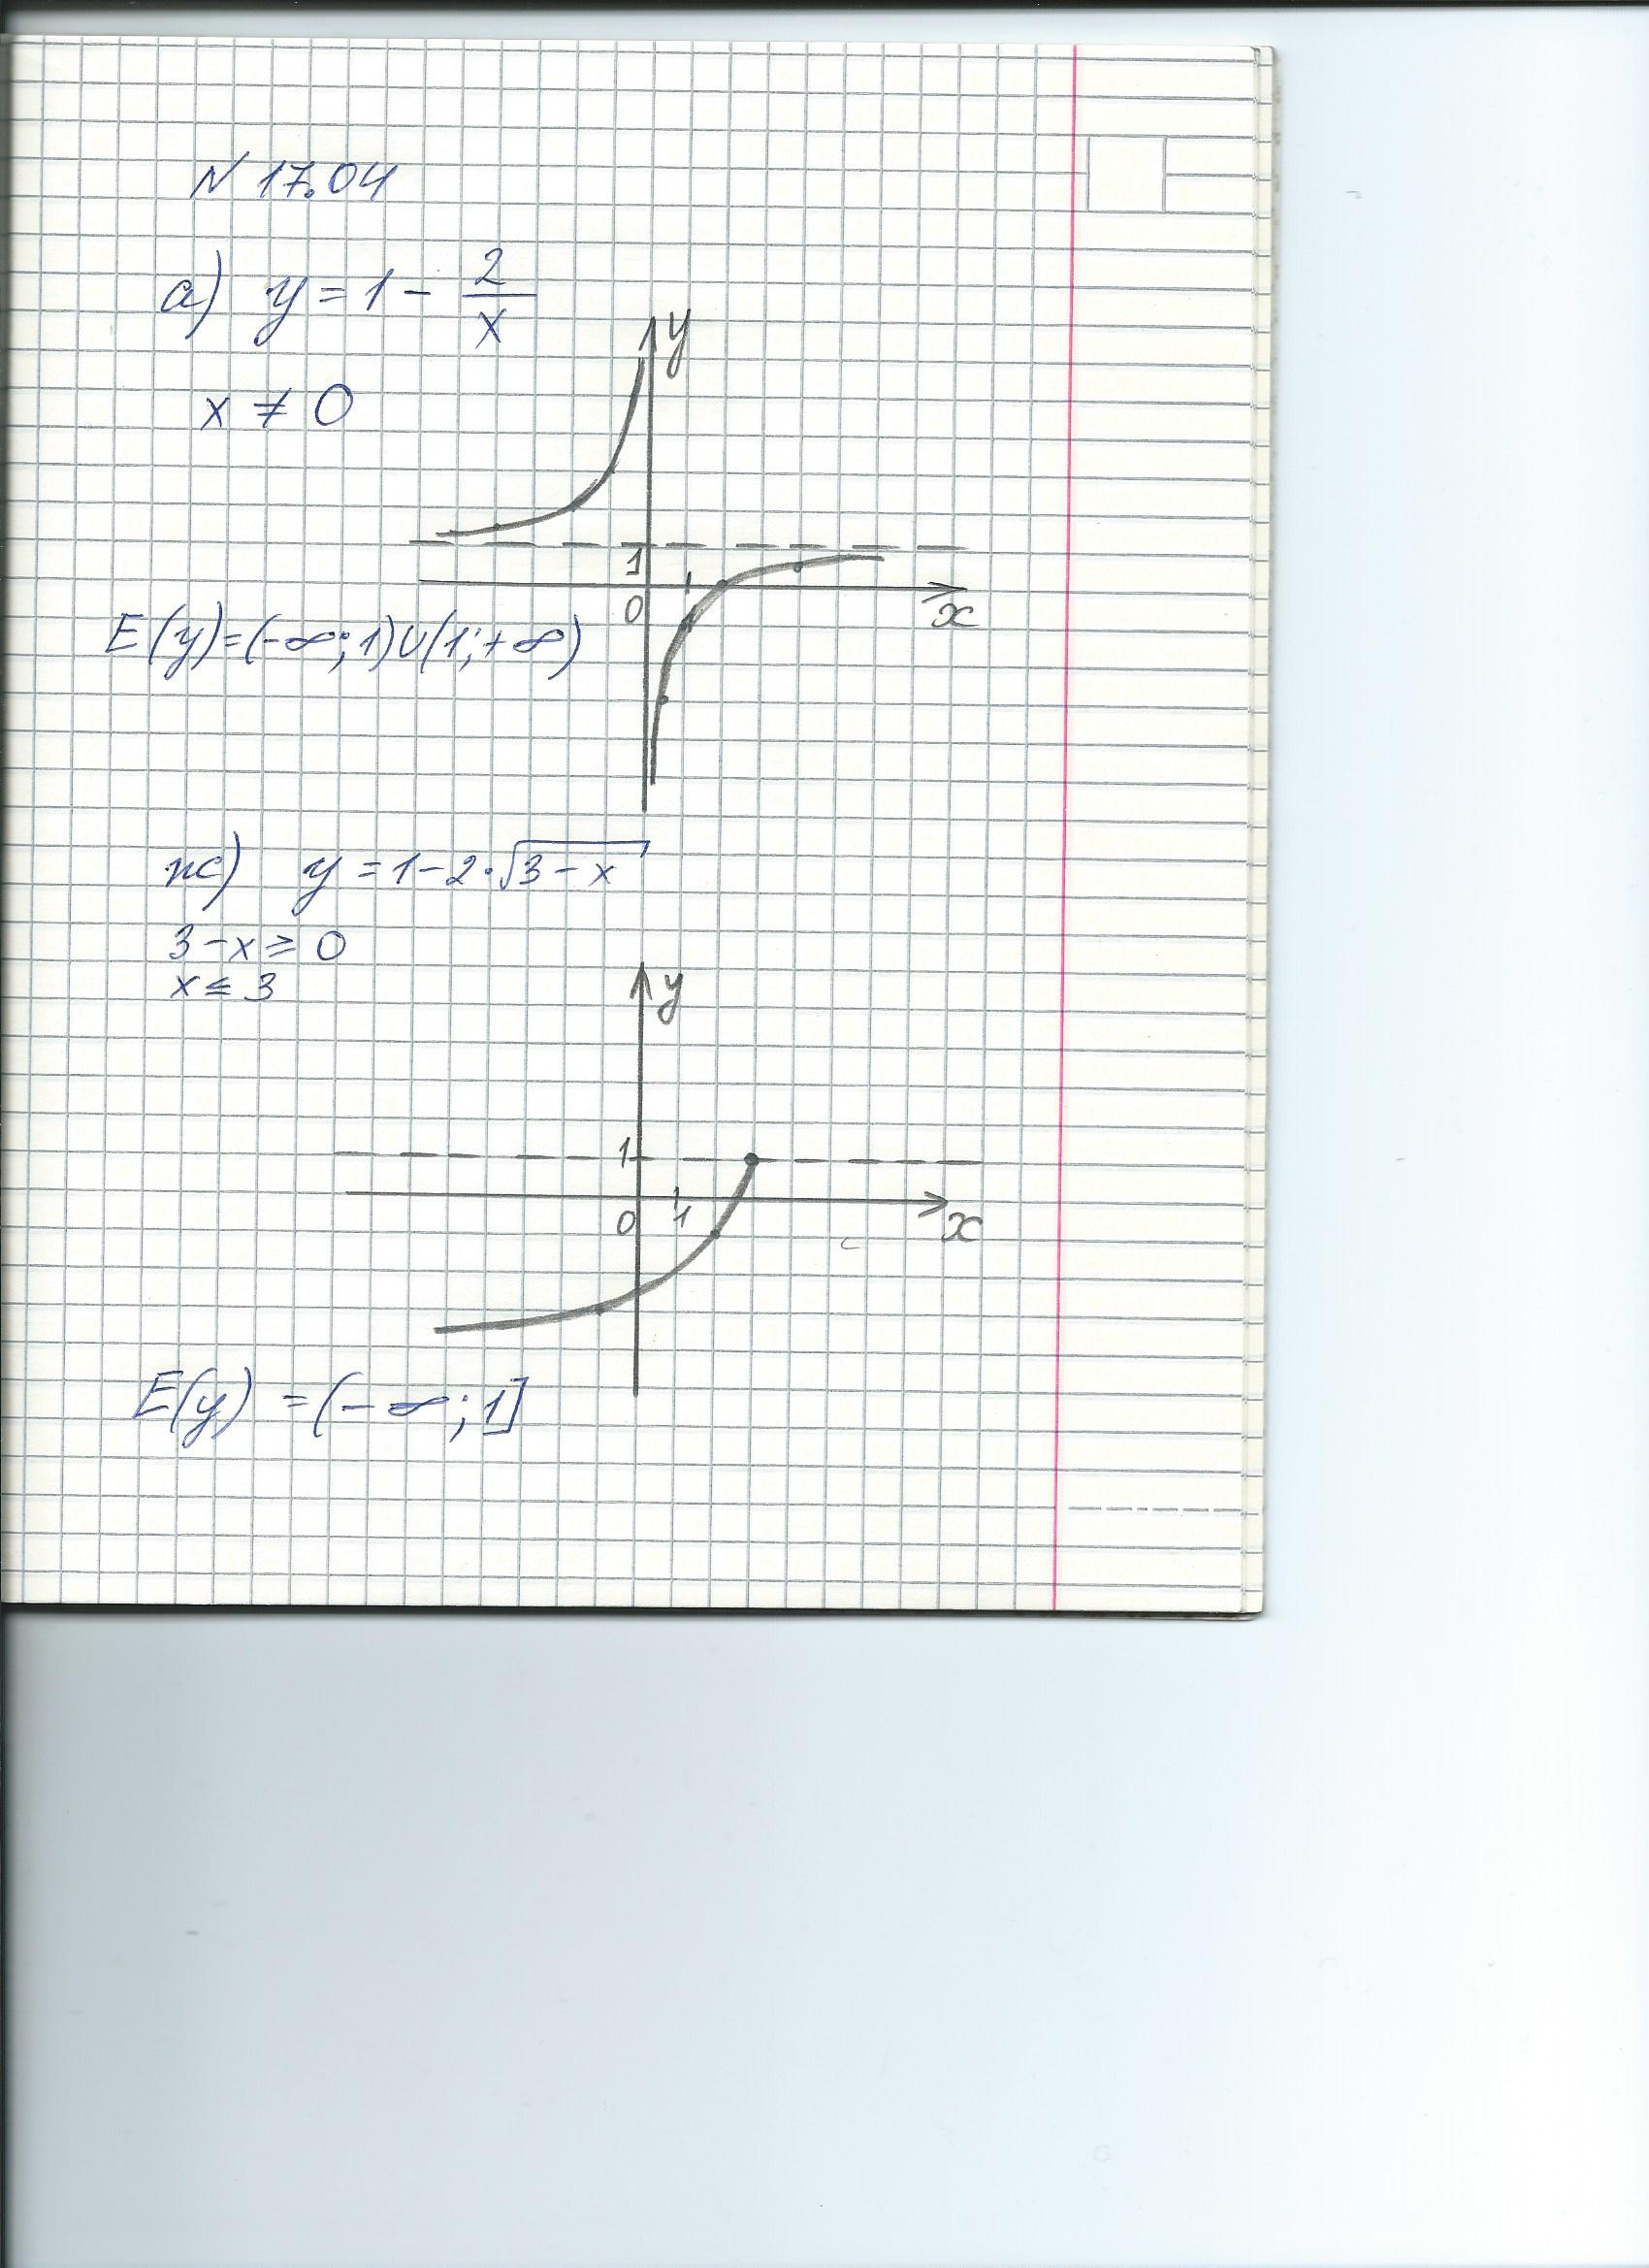 N 17.04
а) y = 1 - 2/x
x ≠ 0
y
1
0
x
E(y)=(-∞;1)∪(1;+∞)
ж) y = 1-2·√(3-x)
3-x ≥ 0
x ≤ 3
y
1
0 1
x
E(y) = (-∞;1]